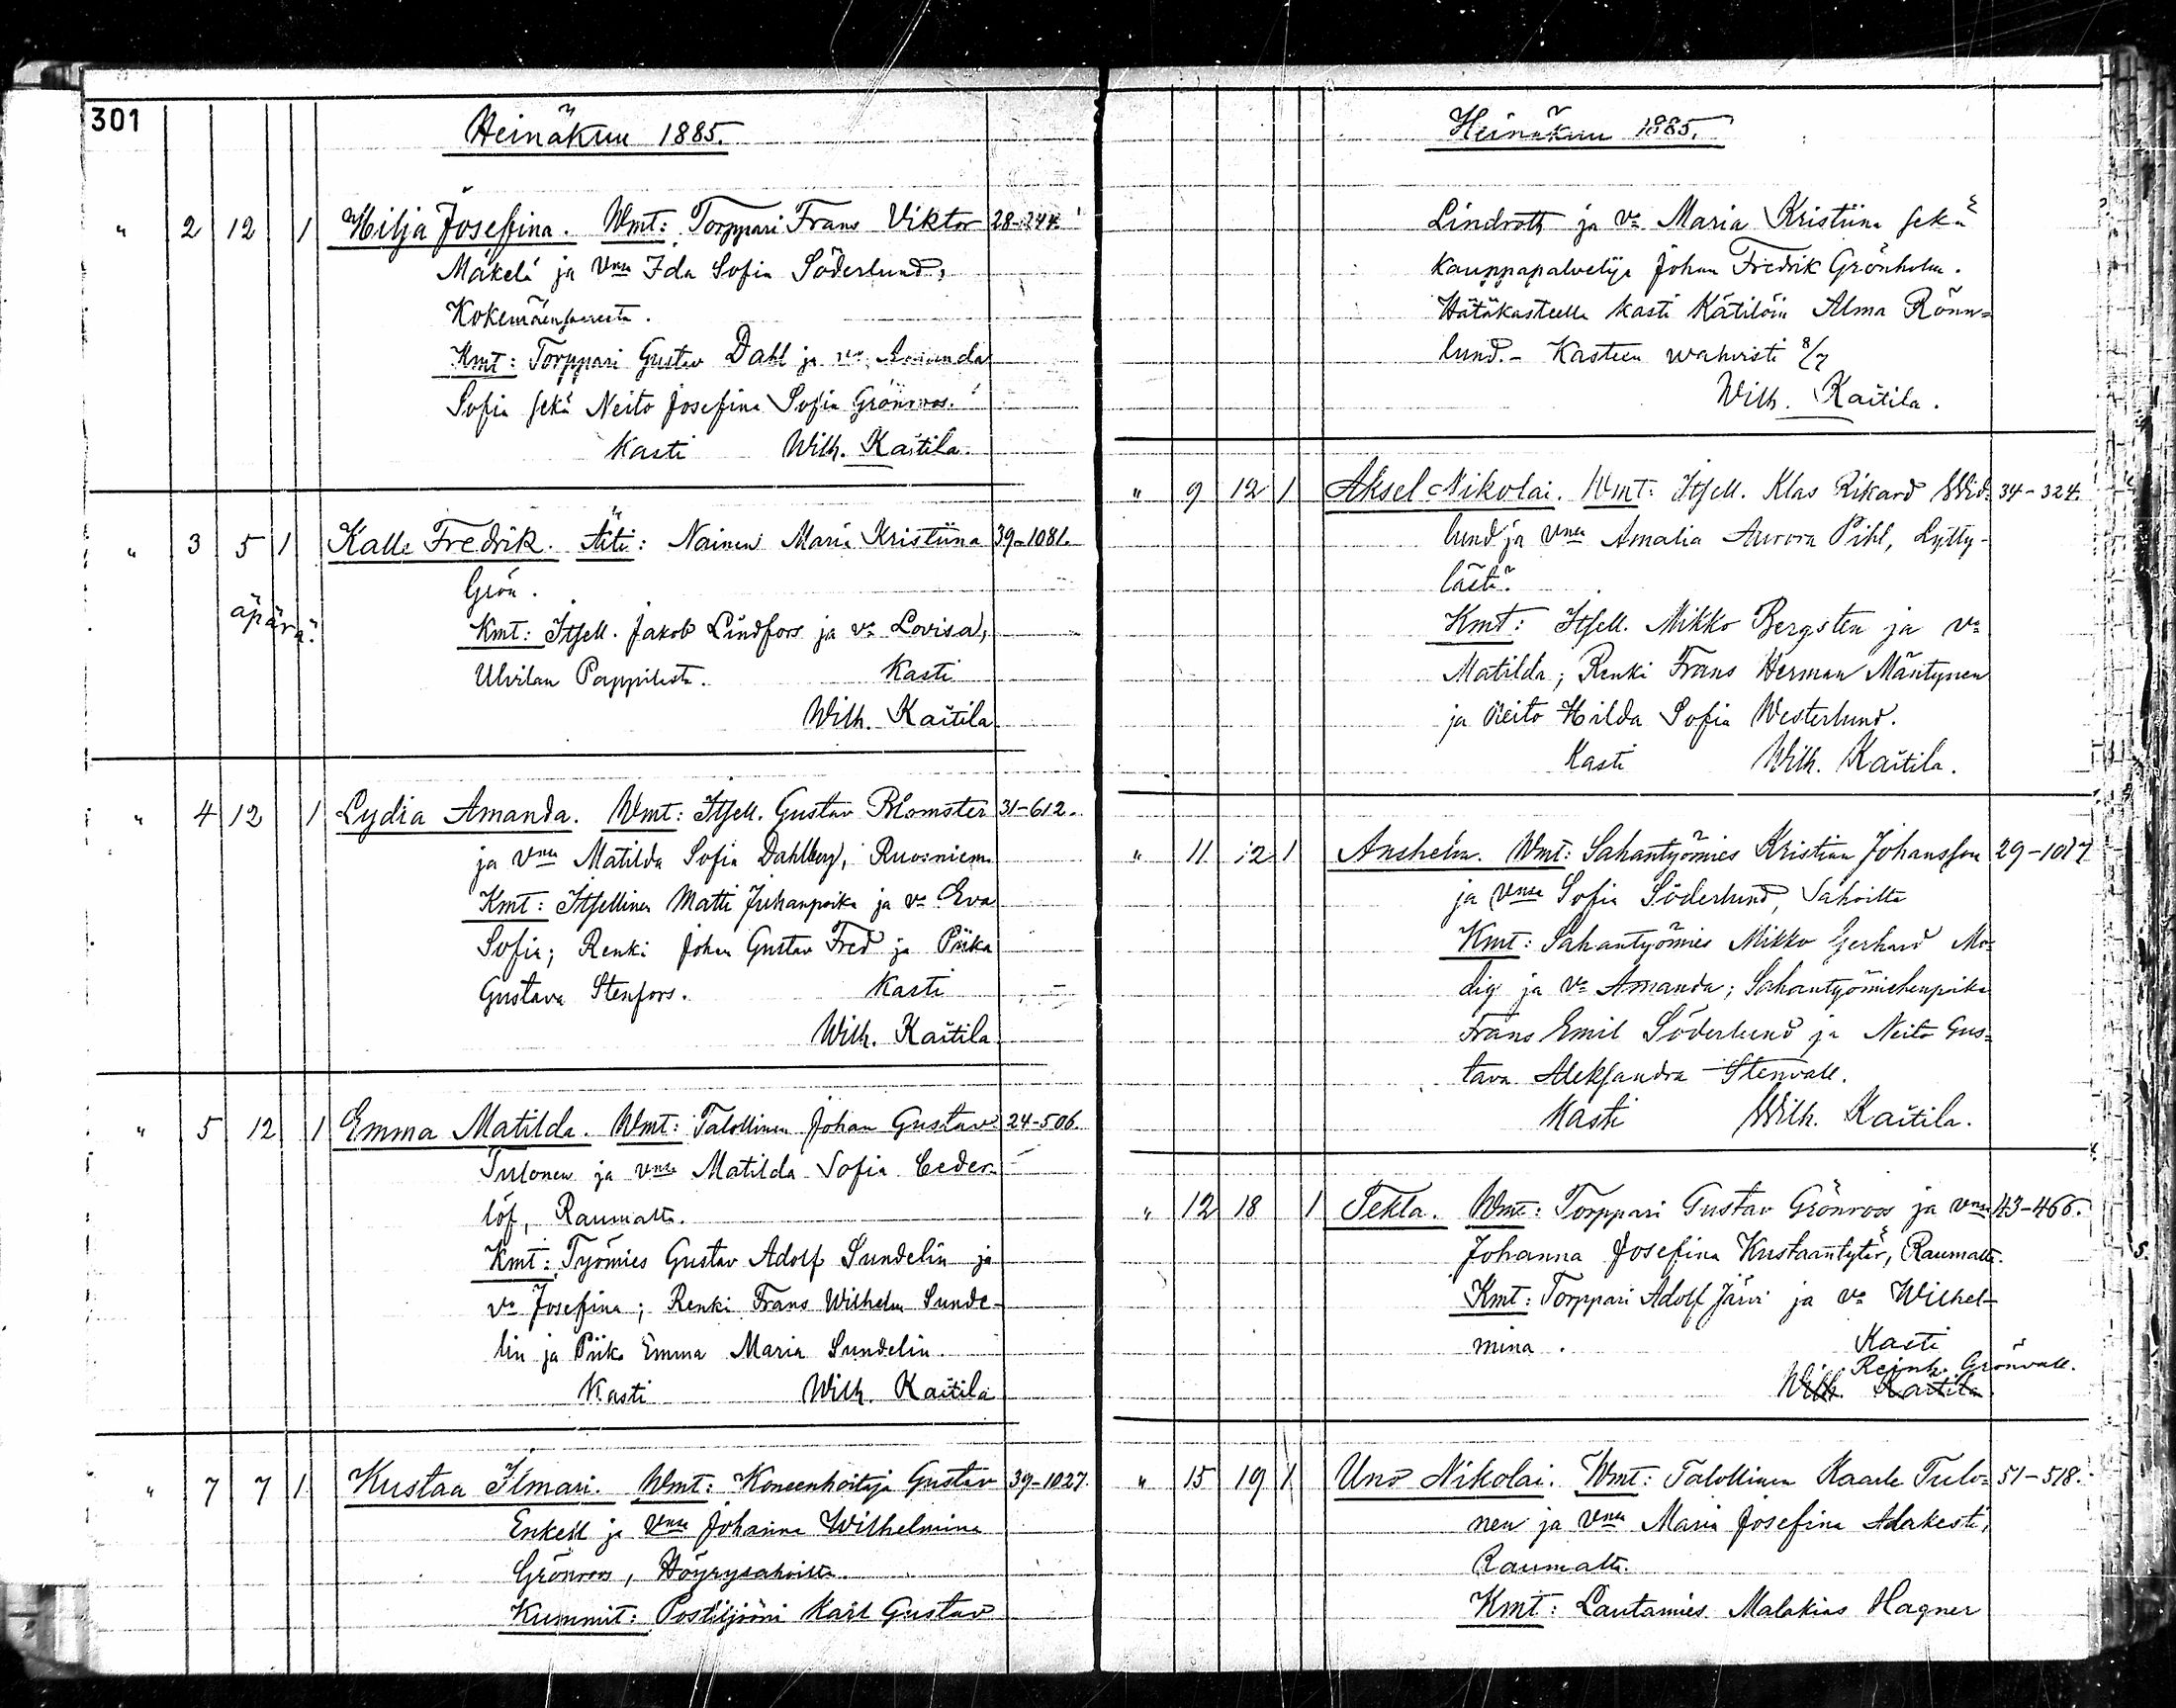 301
Heinäkuu 1885.
" 2 12 1 Hilja Josefina. Wmt: Torppari Frans Viktor 28-244.
Mäkelä ja Vnsa Ida Sofia Söderlund,
Kokemäensaaresta.
Kmt: Torppari Gustav Dahl ja va Amanda
Sofia sekä Neito Josefina Sofia Grönroos.
Kasti Wilh. Kaitila.
" 3 5 1 Kalle Fredrik. Äiti: Nainen Maria Kristiina 39-1081.
äpärä. Grön.
Kmt: Itsell. Jakob Lindfors ja va Lovisa,
Ulvilan Pappilasta. Kasti
Wilh. Kaitila
" 4 12 1 Lydia Amanda. Wmt: Itsell. Gustav Blomster 31-612.
ja vnsa Matilda Sofia Dahlberg, Ruosniem.
Kmt: Itsellinen Matti Juhanpoika ja va Eva
Sofia; Renki Johan Gustav Fred ja Piika
Gustava Stenfors. Kasti
Wilh. Kaitila
" 5 12 1 Emma Matilda. Wmt: Talollinen Johan Gustav 24-506.
Tulonen ja vnsa Matilda Sofia Ceder-
löf, Raumalta.
Kmt: Työmies Gustav Adolf Sundelin ja
va Josefina; Renki Frans Wilhelm Sunde-
lin ja Piika Emma Maria Sundelin.
Kasti Wilh. Kaitila
" 7 7 1 Kustaa Ilmari. Wmt: Koneenhoitaja Gustav 39-1027.
Enkell ja Vnsa Johanna Wilhelmina
Grönroos, Höyrysahoilta.
Kummit: Postiljooni Karl Gustav
Heinäkuu 1885.
Lindroth ja va Maria Kristiina sekä
Kauppapalvelija Johan Fredrik Grönholm.
Hätäkasteella kasti Kätilöin Alma Rönn-
lund. - Kasteen wahvisti 8/7
Wilh. Kaitila.
" 9 12 1 Aksel Nikolai. Wmt: Itsell. Klas Rikard Wid- 34-324.
lund ja vnsa Amalia Aurora Pihl, Lytty-
lästä.
Kmt: Itsell. Mikko Bergsten ja va
Matilda; Renki Frans Herman Mäntynen
ja Neito Hilda Sofia Westerlund.
Kasti Wilh. Kaitila.
" 11 12 1 Anshelm. Wmt: Sahantyömies Kristian Johansson 29-1017
ja Vnsa Sofia Söderlund, Sahoilta
Kmt: Sahantyömies Mikko Gerhard Mo-
dig ja va Amanda; Sahantyömiehenpoika
Frans Emil Söderlund ja Neito Gus-
tava Aleksandra Stenvall.
Kasti Wilh. Kaitila.
" 12 18 1 Tekla. Wmt: Torppari Gustav Grönroos ja vnsa 43-466.
Johanna Josefina Kustaantytär, Raumalta.
Kmt: Torppari Adolf Järvi ja va Wilhel-
mina. Kasti
Reinh. Grönvall.
Wilh. Kaitila
" 15 19 1 Uno Nikolai. Wmt: Talollinen Kaarle Tulo- 51-518.
nen ja vnsa Maria Josefina Alakesti,
Raumalta.
Kmt: Lautamies Malakias Hagner